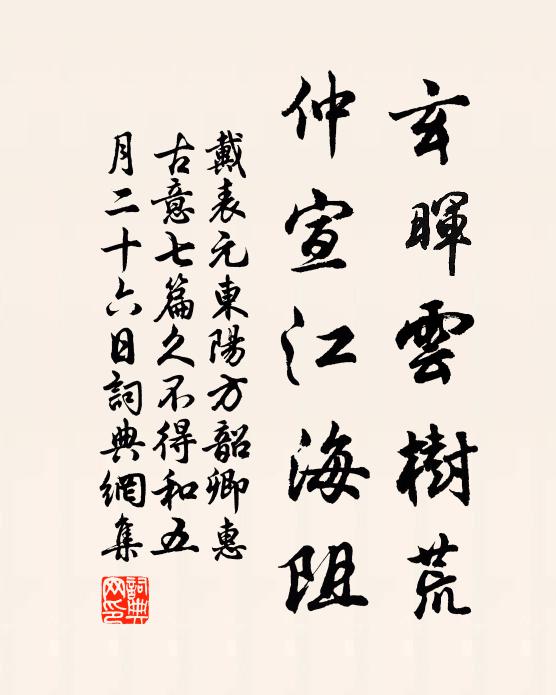 玄暉雲樹荒
仲宣江海阻
戴表元東陽方韶卿惠
古意七篇久不得和五
月二十六日詞典網集
詞典
网印